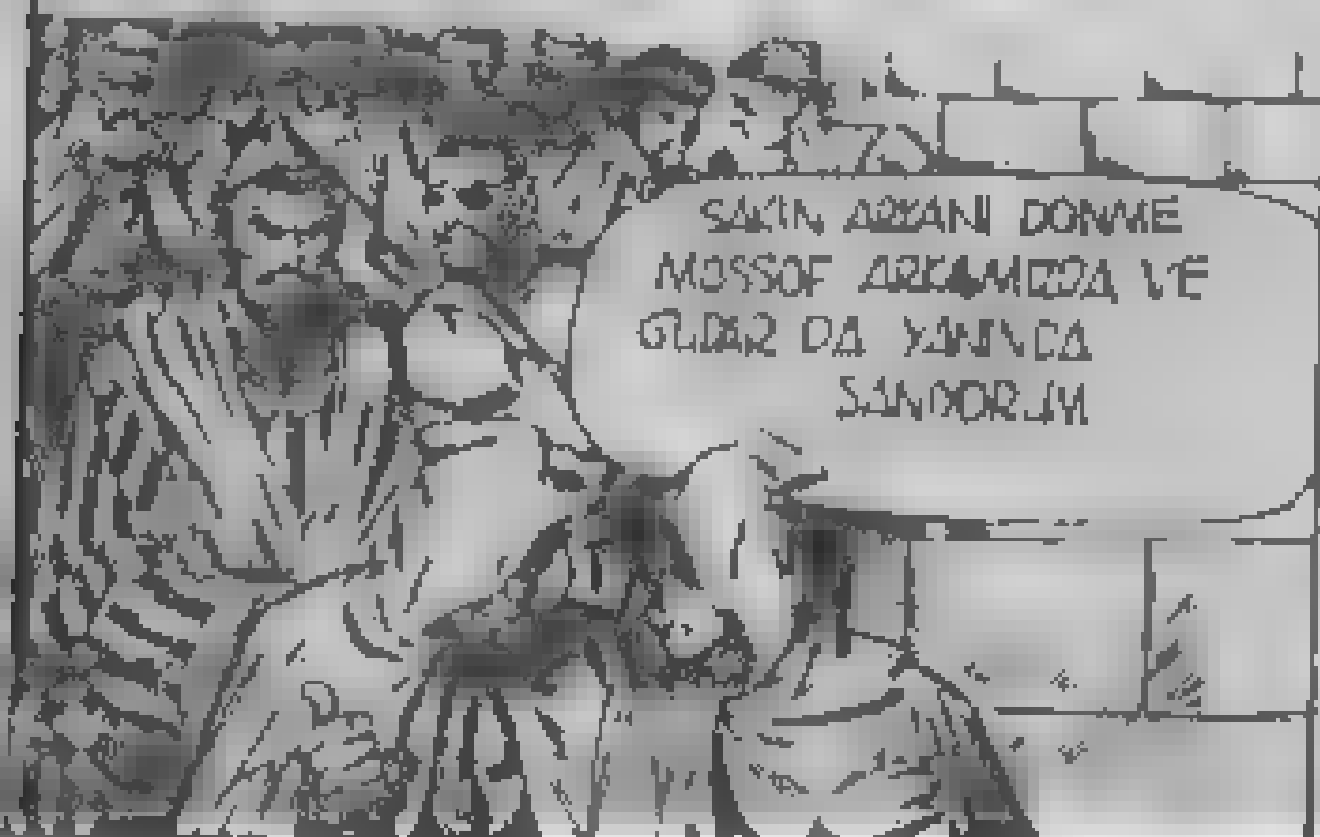 SAKIN ARKANI DONME
MOSSOF ARKAMIZDA VE
DA YANINDA
SANDORIM